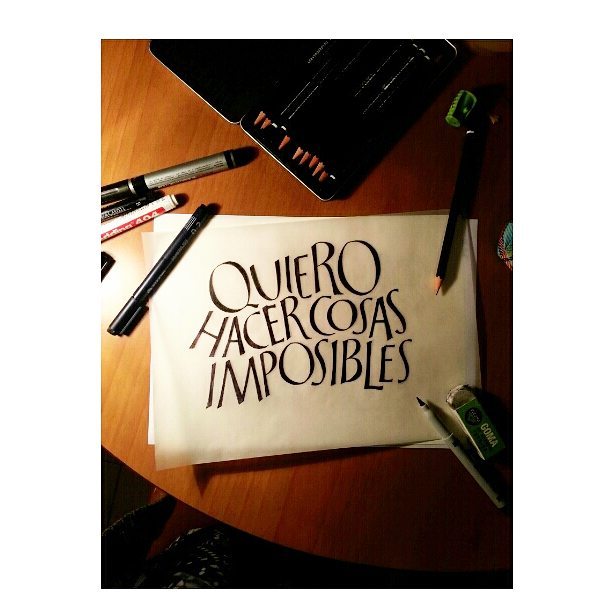 QUIERO
HACER COSAS
IMPOSIBLES
404
GOMA